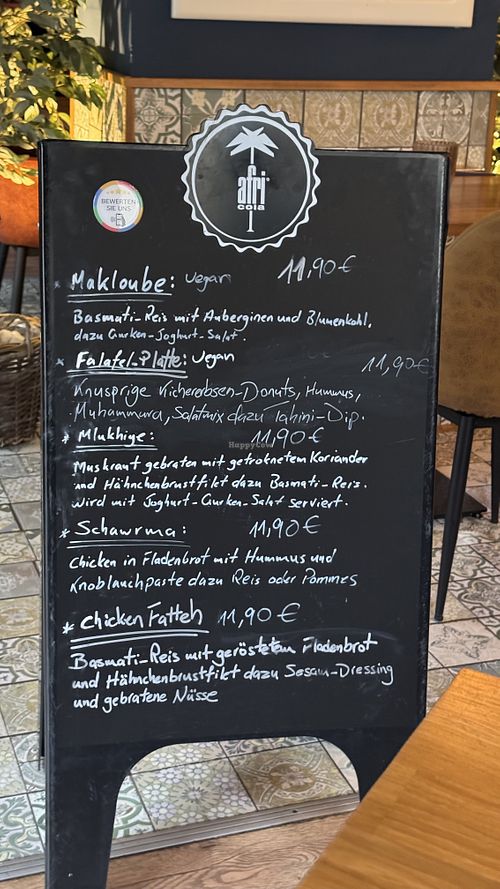 afri
cola
BEWERTEN
SIE UNS
* Makloube: Vegan 11,90€
Basmati-Reis mit Auberginen und Blumenkohl,
dazu Gurken-Joghurt-Salat.
* Falafel-Platte: Vegan 11,90€
Knusprige Kichererbsen-Donuts, Hummus,
Muhammura, Salatmix dazu Tahini-Dip.
* Mlukhige: 11,90€
Muskraut gebraten mit getroknetem Koriander
und Hähnchenbrustfikt dazu Basmati-Reis.
Wird mit Joghurt-Gurken-Salat serviert.
* Schawrma: 11,90€
Chicken in Fladenbrot mit Hummus und
Knoblauchpaste dazu Reis oder Pommes
* Chicken Fatteh 11,90€
Basmati-Reis mit geröstetem Fladenbrot
und Hähnchenbrustfikt dazu Sesam-Dressing
und gebratene Nüsse